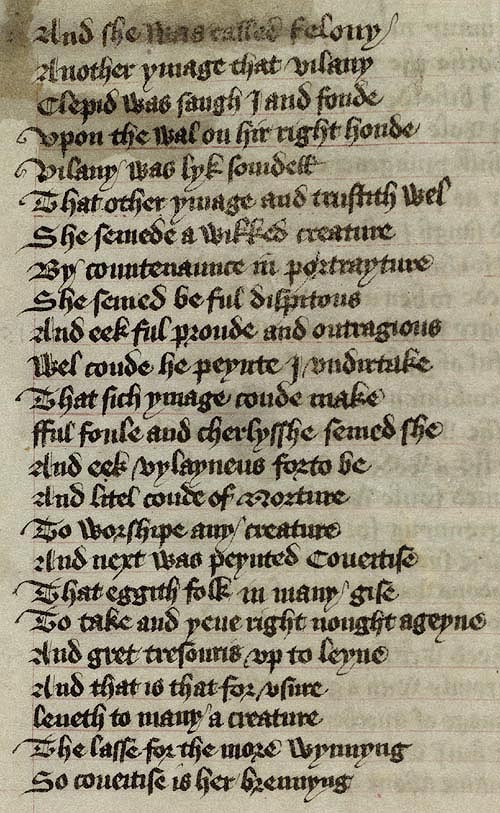 And she was called Felony
Another ymage that vilany
Clepid was saugh I and fonde
Vpon the wal on hir right honde
Vilany was lyk somdell
That other ymage and trustith wel
She semede a wikked creature
By countenaunce in portrayture
She semed be ful dispitous
And eek ful proude and outragious
Wel coude he peynte I vndirtake
That sich ymage coude make
fful foule and cherlysshe semed she
And eek vylayneus forto be
And litel coude of norture
To worshipe any creature
And next was peynted Coueitise
That eggith folk in many gise
To take and yeue right nought ageyne
And gret tresouris vp to leyne
And that is that for vsure
leneth to many a creature
The lasse for the more wynnyng
So coueitise is her brennyng